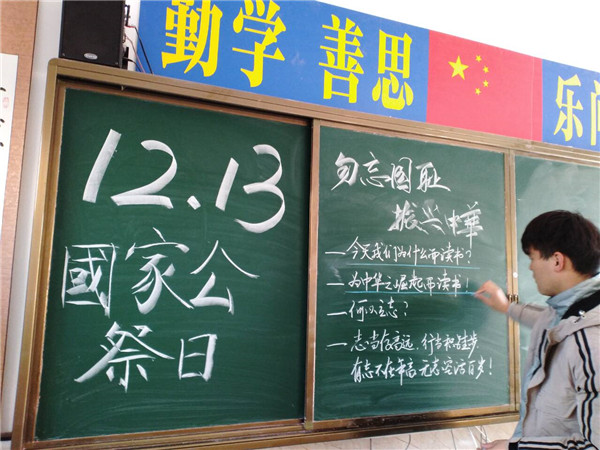 勤学 善思 乐问
12.13
國家公
祭日
勿忘国耻
振兴中華
—今天我们为什么而读书?
—为中华之崛起而读书!
—何以立志?
—志当存高远,行当积跬步
有志不在年高 无志空活百岁!